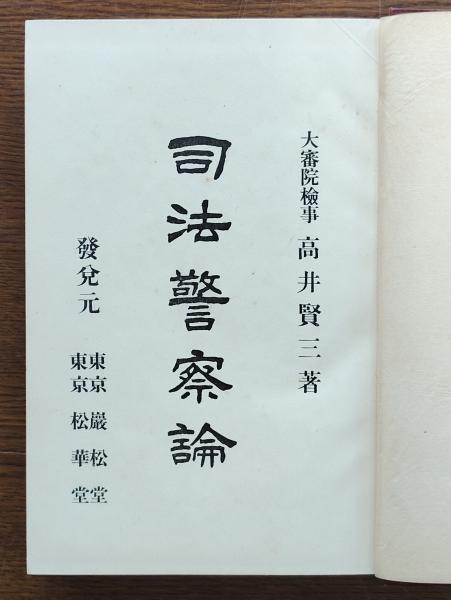 大審院檢事 高井賢三著
司法警察論
發兌元
東京 巖松堂
東京 松華堂